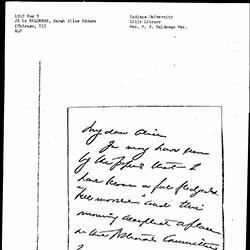 1912 Aug 9
JA to HALDEMAN, Sarah Alice Addams
Chicago, Ill
ALS
Indiana University
Lilly Library
Mrs. S. A. Haldeman Mss.
My dear Alice
You may have seen
by the papers that I
have become a full fledged
"Bull mooser" and this
morning accepted a place
on the National Committee